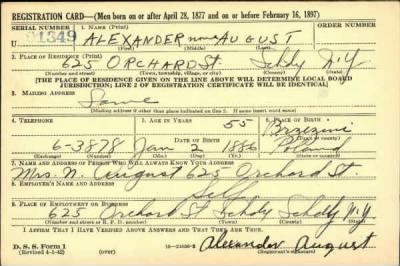 REGISTRATION CARD—(Men born on or after April 28, 1877 and on or before February 16, 1897)
SERIAL NUMBER 1. NAME (Print) ORDER NUMBER
U 1349 ALEXANDER none AUGUST
(First) (Middle) (Last)
2. PLACE OF RESIDENCE (Print)
625 ORCHARD St. Schdy N.Y
(Number and street) (Town, township, village, or city) (County) (State)
[THE PLACE OF RESIDENCE GIVEN ON THE LINE ABOVE WILL DETERMINE LOCAL BOARD
JURISDICTION; LINE 2 OF REGISTRATION CERTIFICATE WILL BE IDENTICAL]
3. MAILING ADDRESS
Same
(Mailing address if other than place indicated on line 2. If same insert word same)
4. TELEPHONE 5. AGE IN YEARS 55 6. PLACE OF BIRTH
DATE OF BIRTH Brzezini
6-3878 Jan 2 1886 Poland
(Exchange) (Number) (Mo.) (Day) (Yr.) (State or country)
7. NAME AND ADDRESS OF PERSON WHO WILL ALWAYS KNOW YOUR ADDRESS
Mrs. N. August 625 Orchard St.
8. EMPLOYER'S NAME AND ADDRESS
Self
9. PLACE OF EMPLOYMENT OR BUSINESS
625 Orchard St Schdy Schdy N.Y.
(Number and street or R. F. D. number) (Town) (County) (State)
I AFFIRM THAT I HAVE VERIFIED ABOVE ANSWERS AND THAT THEY ARE TRUE.
D. S. S. Form 1
(Revised 4-1-42) (over) Alexander August